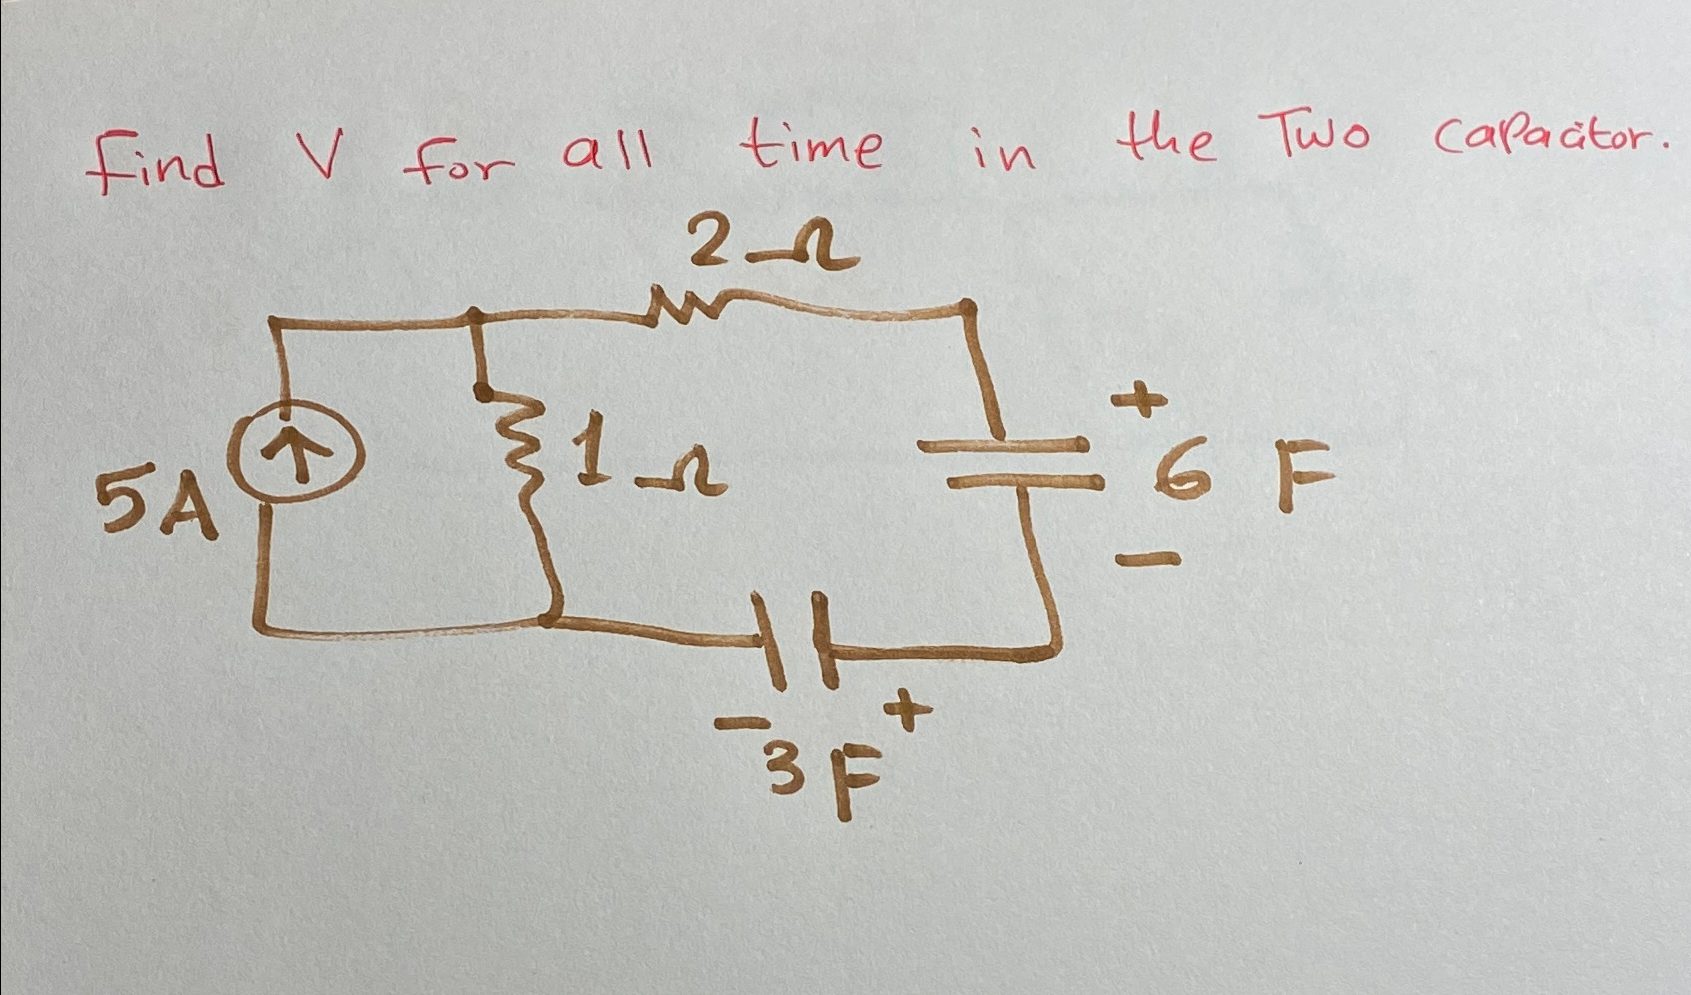 find V for all time in the Two capacitor.
2 Ω
5A
1 Ω
+
6 F
-
- +
3 F